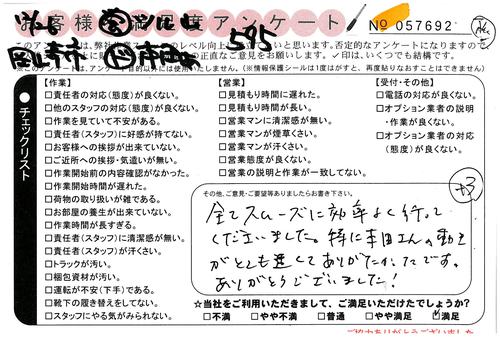 お客様満足度アンケート
No 057692
595
✓印は、いくつでも結構です。
チェックリスト
【作業】
□責任者の対応(態度)が良くない。
□他のスタッフの対応(態度)が良くない。
□作業を見ていて不安がある。
□責任者(スタッフ)に好感が持てない。
□お客様への挨拶が出来ていない。
□ご近所への挨拶・気遣いが無い。
□作業開始前の内容確認がなかった。
□作業開始時間が遅れた。
□荷物の取り扱いが雑である。
□お部屋の養生が出来ていない。
□作業時間が長すぎる。
□責任者(スタッフ)に清潔感が無い。
□責任者(スタッフ)が汗くさい。
□トラックが汚い。
□梱包資材が汚い。
□運転が不安(下手)である。
□靴下の履き替えをしてない。
□スタッフにやる気がみられない。
【営業】
□見積もり時間に遅れた。
□見積もり時間が長い。
□営業マンに清潔感が無い。
□営業マンが煙草くさい。
□営業マンが汗くさい。
□営業態度が良くない。
□営業の説明と作業が一致してない。
【受付・その他】
□電話の対応が良くない。
□オプション業者の説明
・作業が良くない。
□オプション業者の対応
(態度)が良くない。
その他、ご意見・ご要望等ありましたらお書き下さい。
全てスムーズに効率よく行って
くださいました。特に本田さんの動き
がとても速くてありがたかったです。
ありがとうございました!
☆当社をご利用いただきまして、ご満足いただけたでしょうか?
□不満 □やや不満 □普通 □やや満足 ☑満足